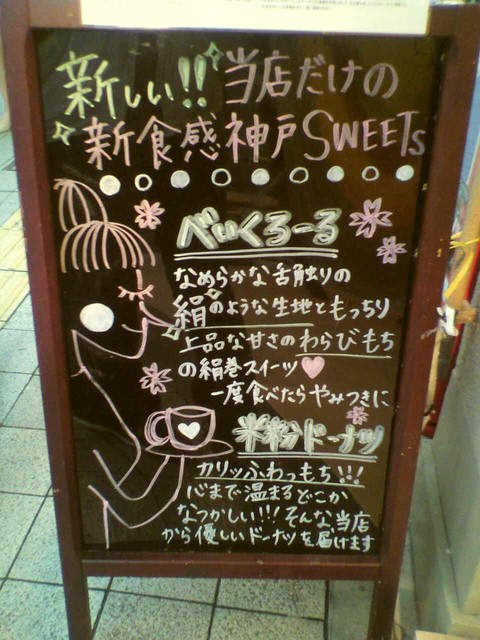 新しい!! 当店だけの
新食感神戸SWEETS
べいくろーる
なめらかな舌触りの
絹のような生地ともっちり
上品な甘さのわらびもち
の絹巻スイーツ
一度食べたらやみつきに
米粉ドーナツ
カリッふわっもち!!!
心まで温まるどこか
なつかしい!!! そんな当店
から優しいドーナツを届けます